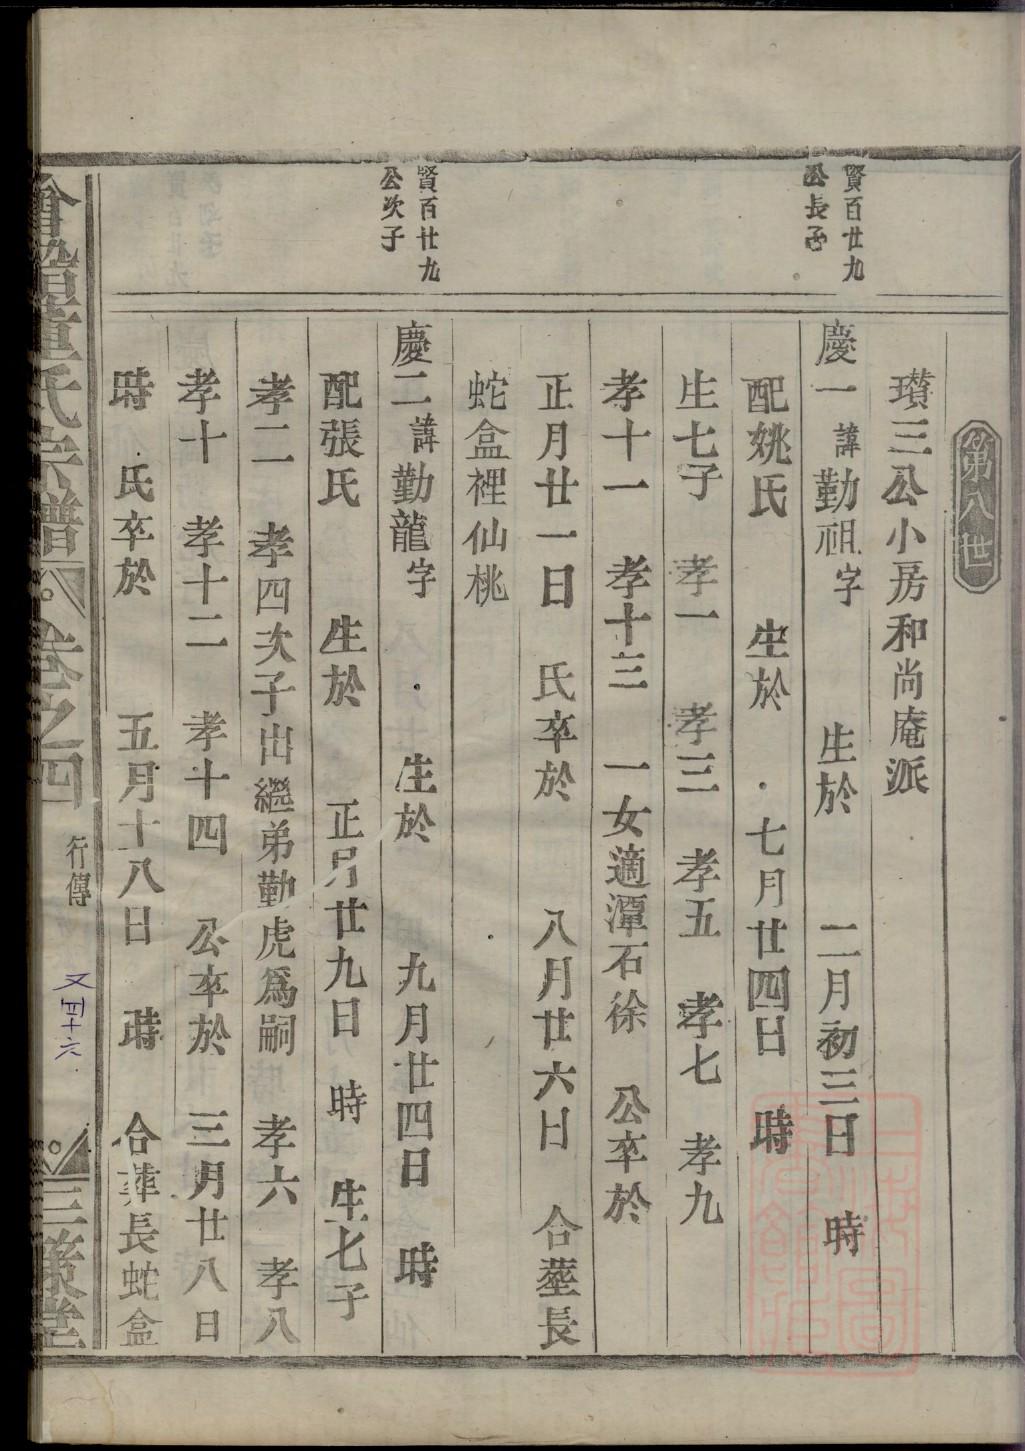 第八世
璳三公小房和尚庵派
賢百廿九
公長子
慶一 諱勤祖字 生於 二月初三日 時
配姚氏 生於 七月廿四日 時
生七子 孝一 孝三 孝五 孝七 孝九
孝十一 孝十三 一女適潭石徐 公卒於
正月廿一日 氏卒於 八月廿六日 合塟長
蛇盒裡仙桃
賢百廿九
公次子
慶二 諱勤龍字 生於 九月廿四日 時
配張氏 生於 正月廿九日 時 生七子
孝二 孝四次子出繼弟勤虎爲嗣 孝六 孝八
孝十 孝十二 孝十四 公卒於 三月廿八日
時 氏卒於 五月十八日 時 合葬長蛇盒
會稽董氏宗譜 卷之四 行傳 又四十六 三策堂